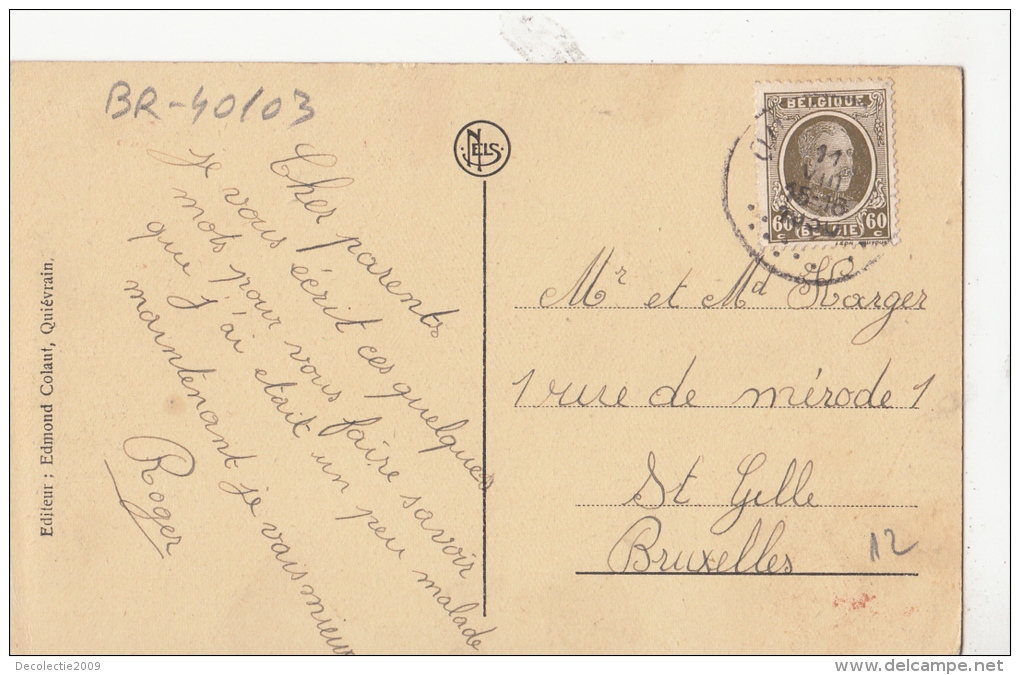 BR-40/03
Cher parents
je vous écrit ces quelques
mots pour vous faire savoir
que j'ai etait un peu malade
maintenant je vais mieux
Roger
Editeur : Edmond Colaut, Quiévrain.
NELS
BELGIQUE
60 60
c BELGIE c
11
VIII
15-16
1930
Mr et Md Karger
1 rure de mérode 1
St Gelle
Bruxelles
12
Decolectie2009
delcampe.net